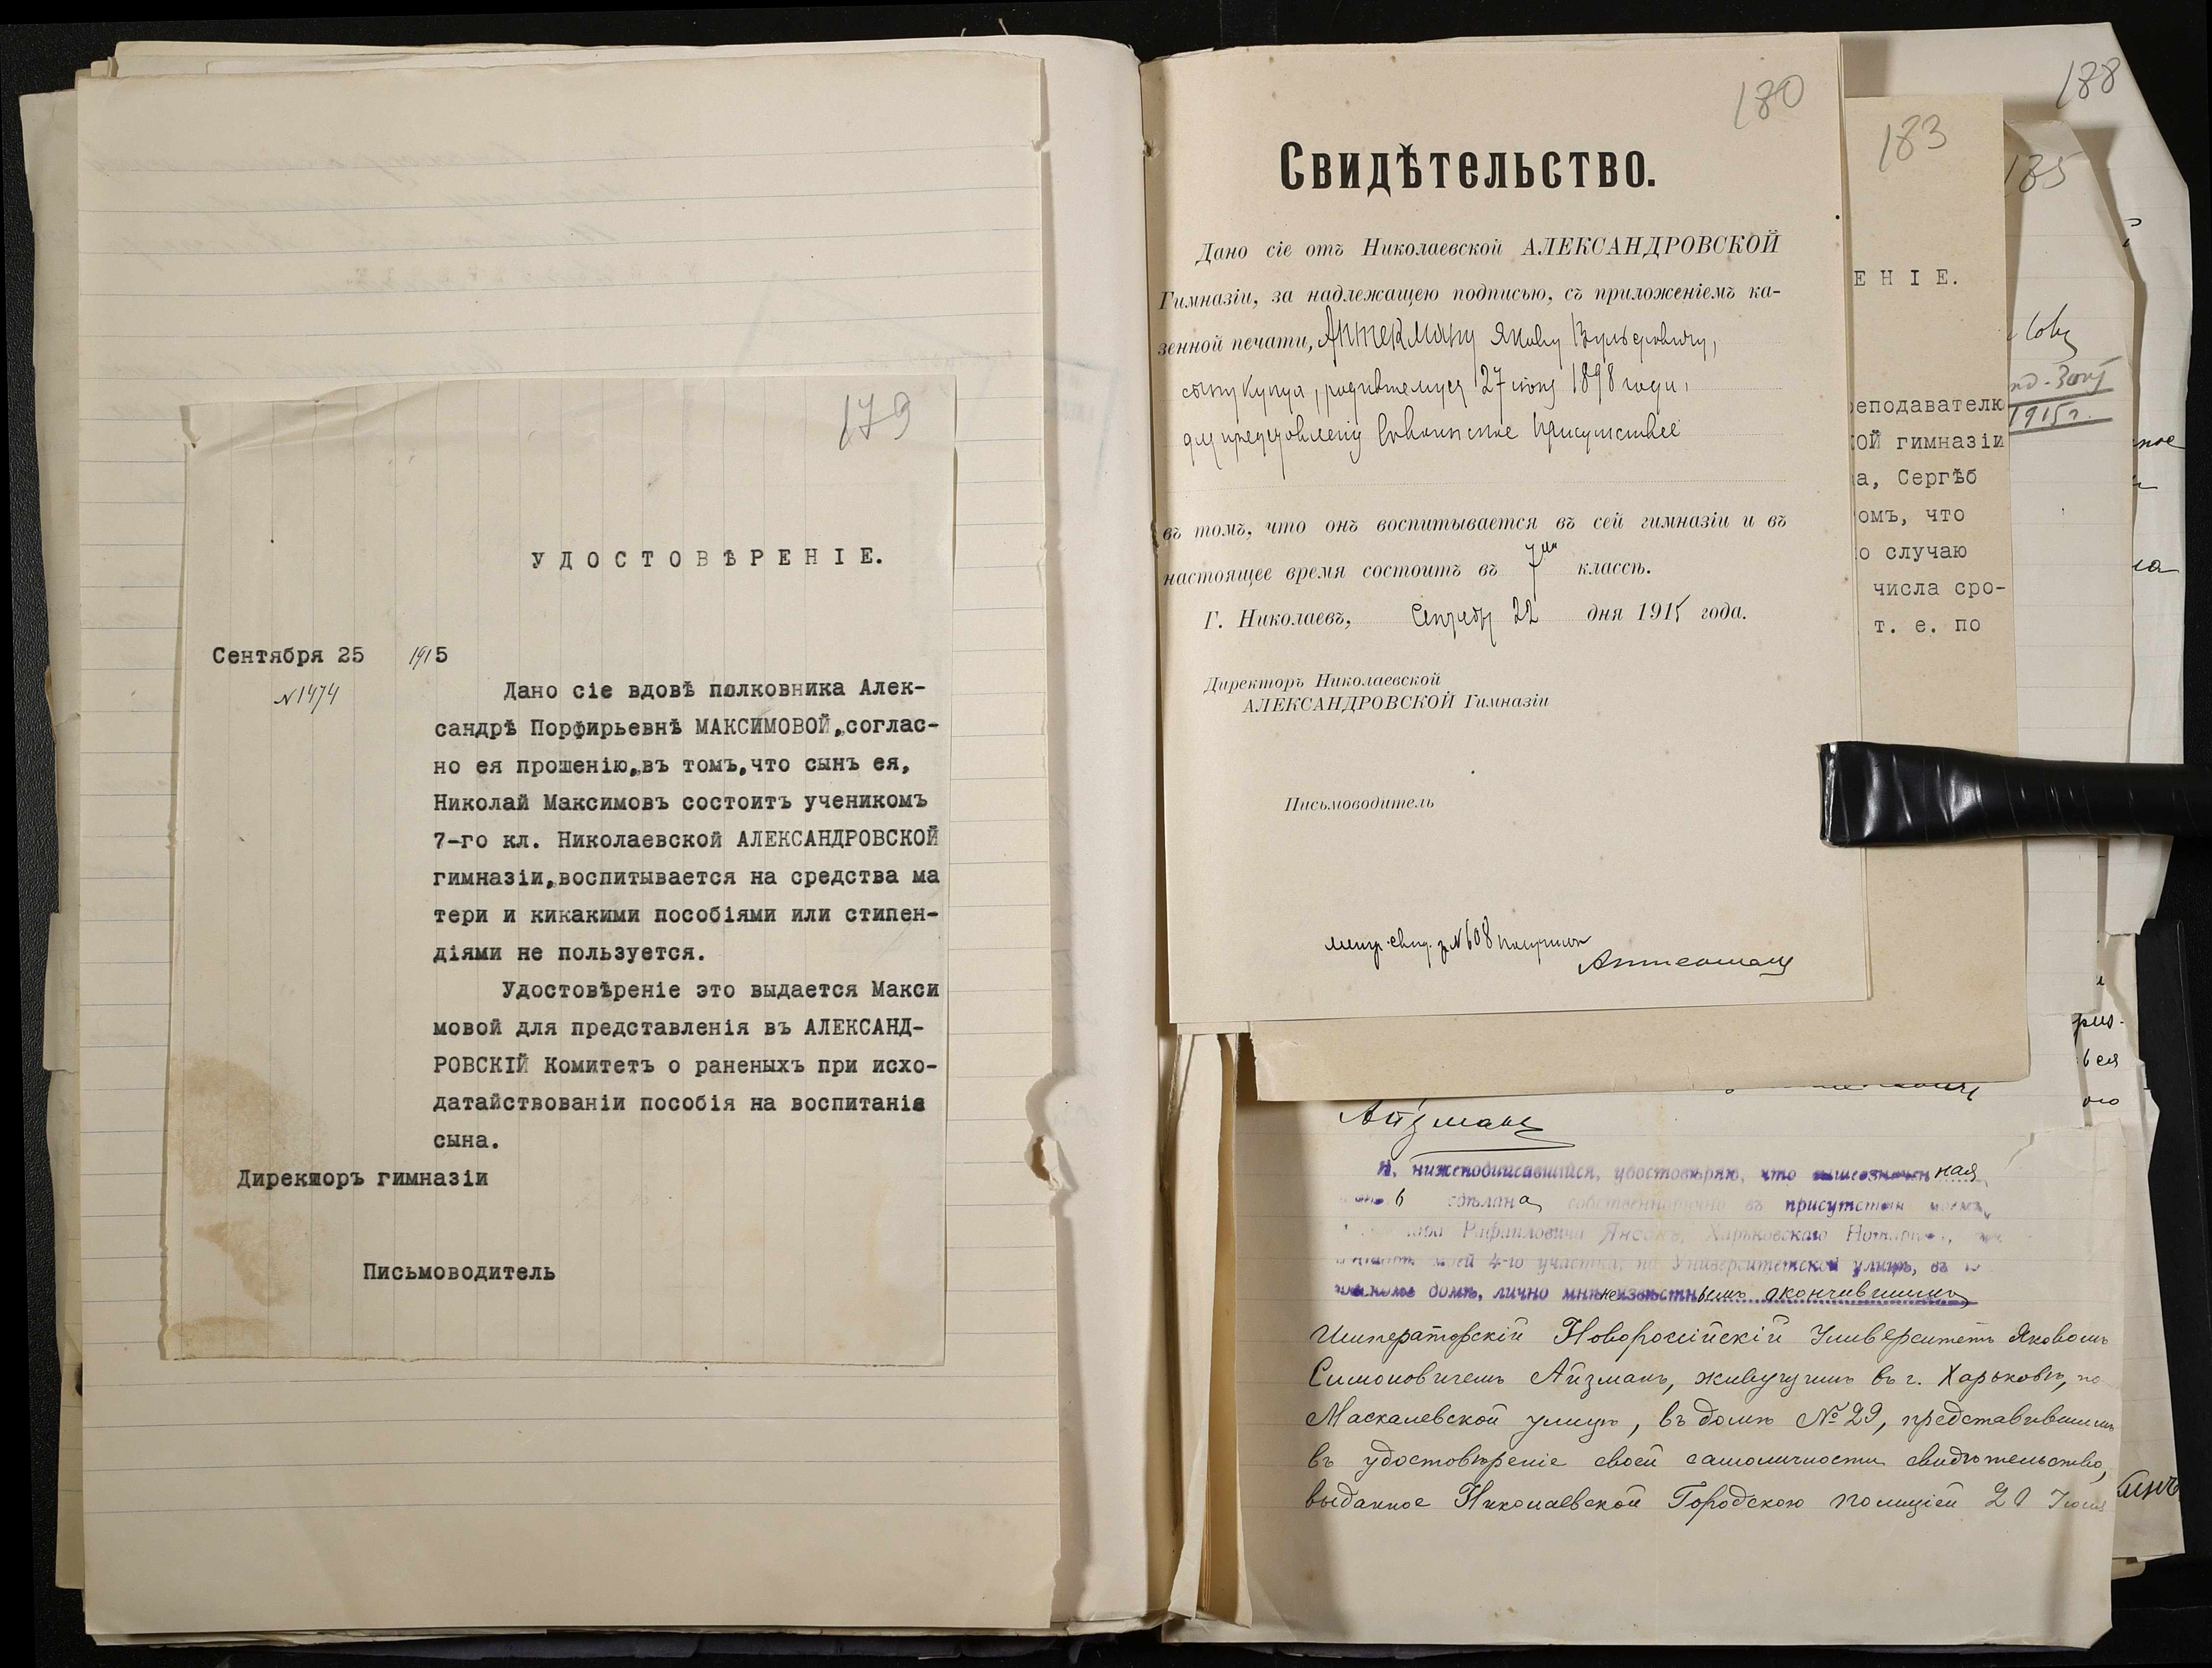 179
УДОСТОВѢРЕНІЕ.
Сентября 25 1915
№1474
Дано сіе вдовѣ полковника Алек-
сандрѣ Порфирьевнѣ МАКСИМОВОЙ, соглас-
но ея прошенію, въ томъ, что сынъ ея,
Николай Максимовъ состоитъ ученикомъ
7-го кл. Николаевской АЛЕКСАНДРОВСКОЙ
гимназіи, воспитывается на средства ма
тери и кикакими пособіями или стипен-
діями не пользуется.
Удостовѣреніе это выдается Макси
мовой для представленія въ АЛЕКСАНД-
РОВСКІЙ Комитетъ о раненыхъ при исхо-
датайствованіи пособія на воспитаніе
сына.
Директоръ гимназіи
Письмоводитель
180
Свидѣтельство.
Дано сіе отъ Николаевской АЛЕКСАНДРОВСКОЙ
Гимназіи, за надлежащею подписью, съ приложеніемъ ка-
зенной печати, Аптекману Якову Вульфовичу,
сыну купца, родившемуся 27 1898 года,
для представленія въ воинское присутствіе
въ томъ, что онъ воспитывается въ сей гимназіи и въ
настоящее время состоитъ въ 7мъ классѣ.
Г. Николаевъ, Сентября 22 дня 1915 года.
Директоръ Николаевской
АЛЕКСАНДРОВСКОЙ Гимназіи
Письмоводитель
свид. №608 получилъ
Аптекманъ
183
ЕНІЕ.
реподавателю
ОЙ гимназіи
а, Сергѣб
омъ, что
о случаю
числа сро-
т. е. по
185
1915г.
188
Айзманъ
Я, нижеподписавшійся, удостовѣряю, что вышеозначенная
сдѣлана собственноручно въ присутствіи моемъ,
Рафаиловича Янсонъ, Харьковскаго Нотаріуса,
моей 4-го участка, по Университетской улицѣ, въ
домѣ, лично мнѣ неизвѣстнымъ окончившимъ
Императорскій Новороссійскій Университетъ Яковомъ
Симоновичемъ Айзманъ, живущимъ въ г. Харьковѣ, по
Маскалевской улицѣ, въ домѣ №29, представившимъ
въ удостовѣреніе своей самоличности свидѣтельство,
выданное Николаевской Городскою полиціей 20